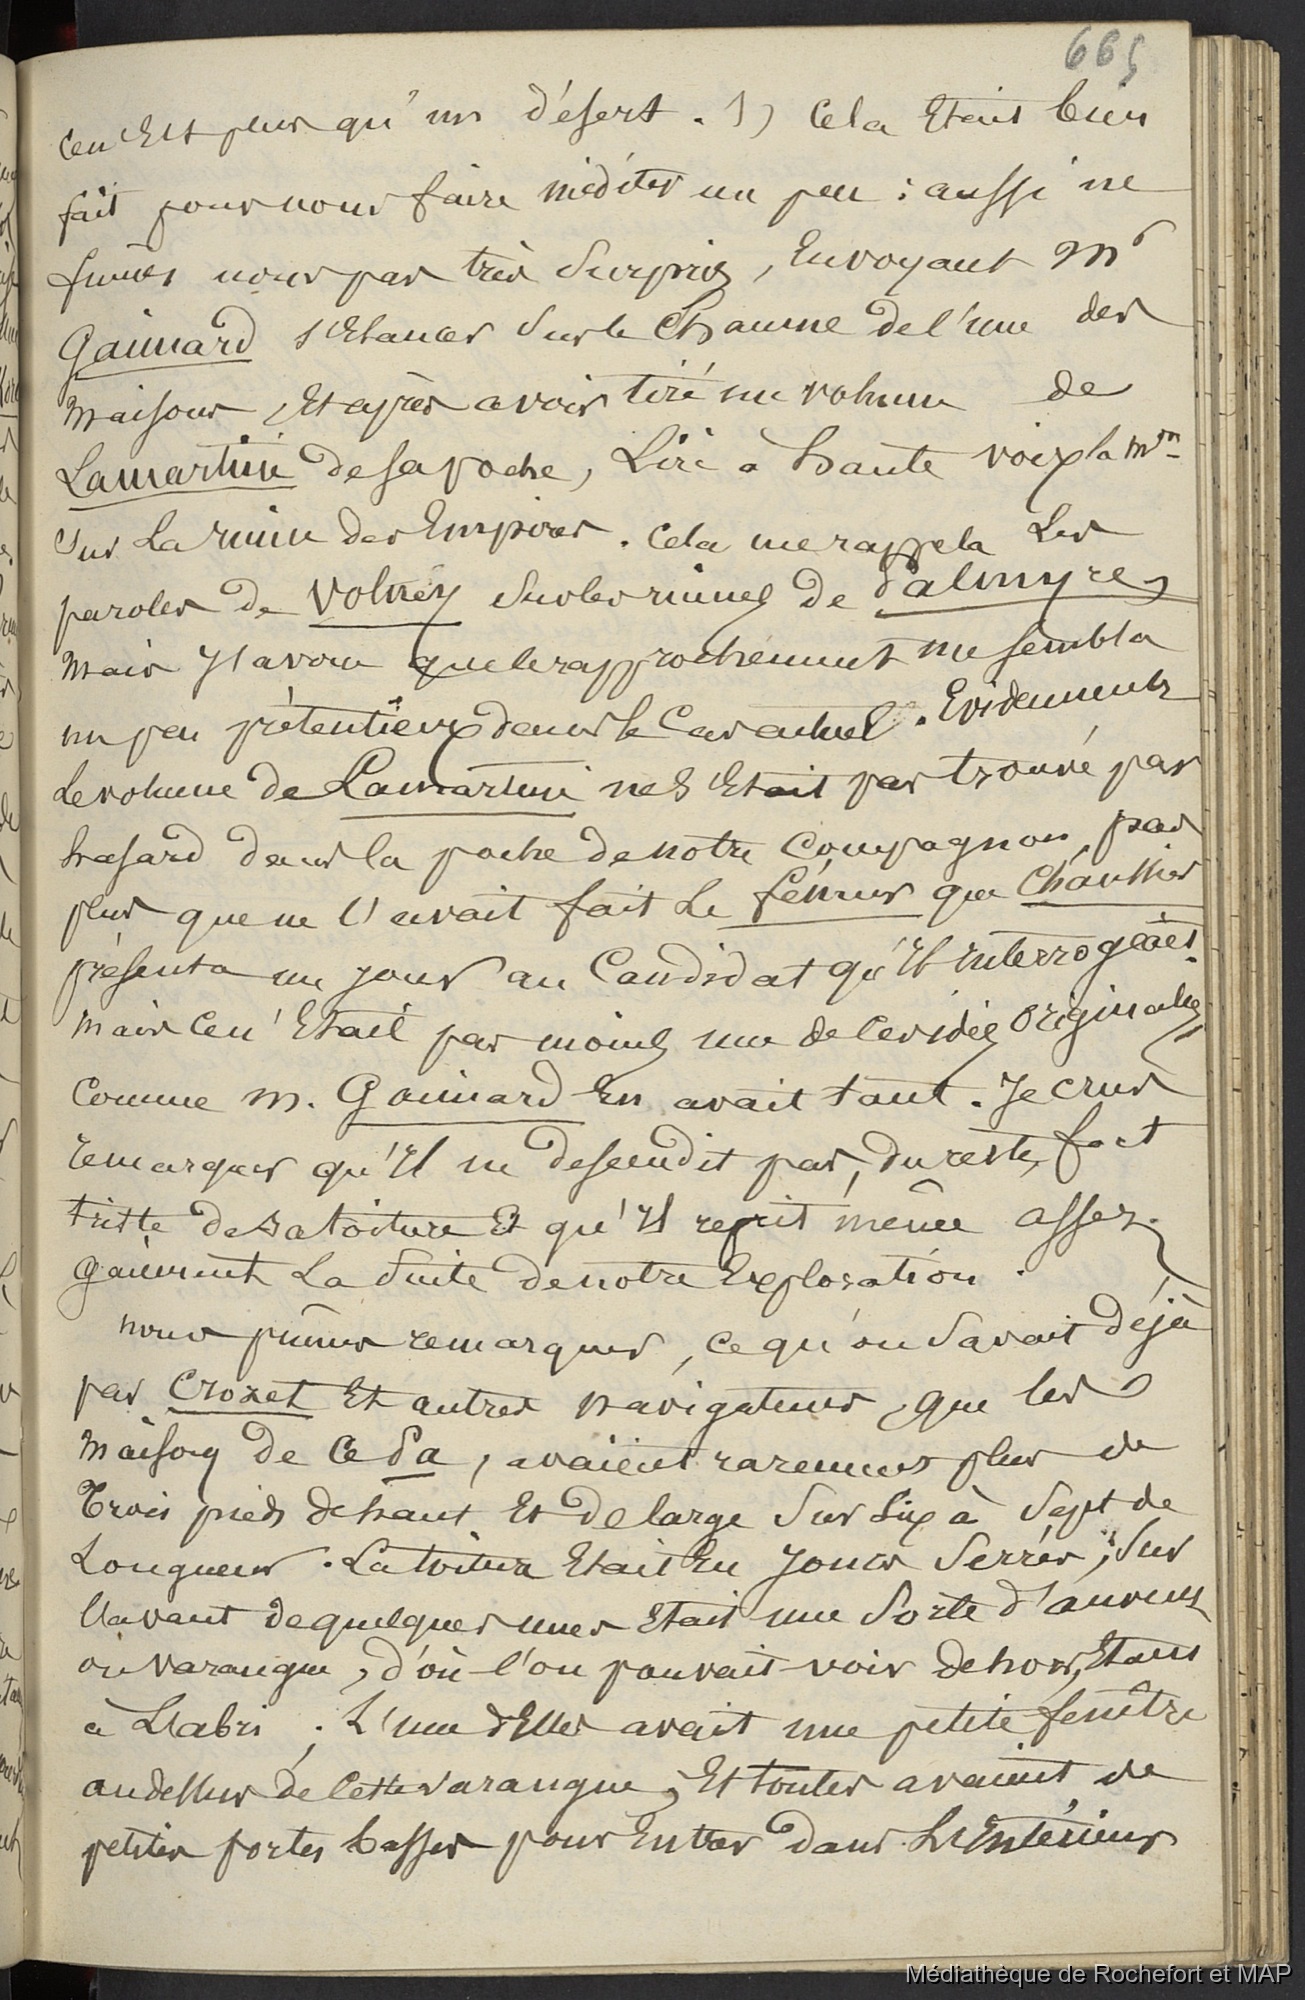 665
ce n'Est plus qu'un désert. 1) Cela Etait bien
fait pour nous faire méditer un peu : aussi ne
fumes nous pas très Surpris, En voyant Mr
Gaimard s'Elancer Sur le Chaume de l'une des
Maisons, Et après avoir tiré un volume de
Lamartine de sa poche, Lire à haute voix la Mon
Sur La ruine des Empires. Cela me rappela Les
paroles de Volney Sur les ruines de Palmyre,
Mais J'avoue que le rapprochement me sembla
un peu prétentieux dans le Cas actuel. Evidemment
Le volume de Lamartine ne S'Etait pas trouvé par
hasard dans la poche de notre Compagnon, pas
plus que ne l'avait fait Le fémur que Chaussier
présenta un jour au Candidat qu'Il Interrogeait.
Mais Ce n'Etait pas moins une de Ces idées Originales
Comme M. Gaimard En avait tant. Je crus
remarquer qu'Il ne descendit pas, du reste, fort
triste de sa toiture Et qu'Il reprit même assez
gaiement La Suite de notre Exploration.
Nous pûmes remarquer, ce qu'on Savait Déjà
par Crozet Et autres Navigateurs, que les
Maisons de Ce Pa, avaient rarement plus de
Trois pieds de haut Et de large Sur Six à Sept de
Longueur. La toiture Etait En Joncs Serrés ; Sur
l'avant de quelques unes Etait une Sorte d'auvent
ou varangue, d'où l'on pouvait voir dehors, Etant
à L'abri ; L'une d'Elles avait une petite fenêtre
au dessus de Cette varangue, Et toutes avaient de
petites portes basses pour Entrer dans L'Intérieur
Médiathèque de Rochefort et MAP